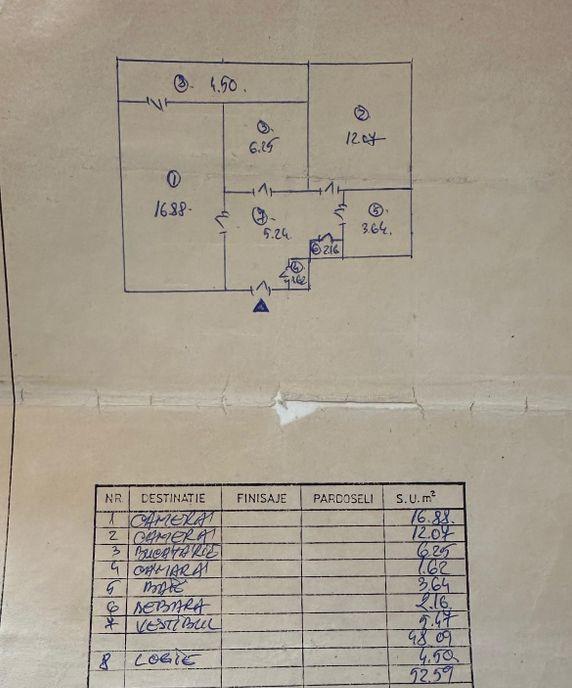 8 4.50.
2
12.07
3
6.25
1
16.88
7
5.24
5
3.64
6 2.16
4
1.62
NR. DESTINATIE FINISAJE PARDOSELI S.U. m²
1 CAMERA 16.88.
2 CAMERA 12.07
3 BUCATARIE 6.25
4 CAMARA 1.62
5 BAIE 3.64
6 DEBARA 2.16
7 VESTIBUL 5.47
48.09
8 LOGIE 4.50
52.59